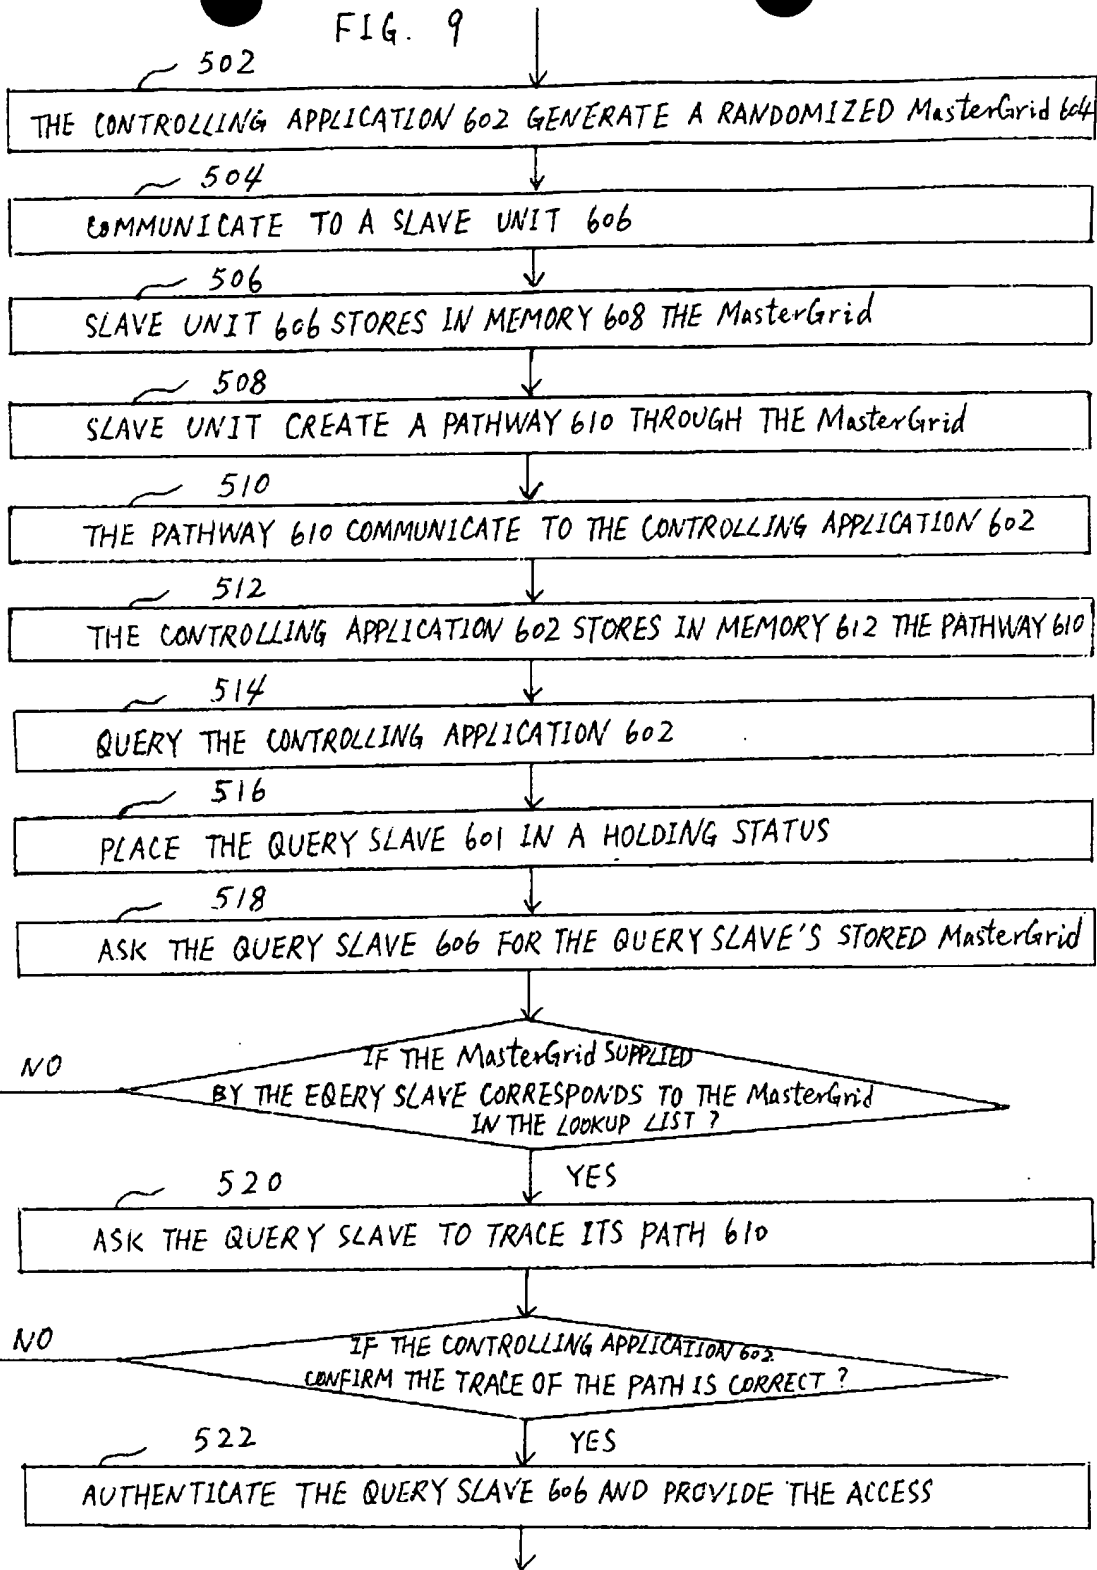 FIG. 9
502
THE CONTROLLING APPLICATION 602 GENERATE A RANDOMIZED MasterGrid 604
504
COMMUNICATE TO A SLAVE UNIT 606
506
SLAVE UNIT 606 STORES IN MEMORY 608 THE MasterGrid
508
SLAVE UNIT CREATE A PATHWAY 610 THROUGH THE MasterGrid
510
THE PATHWAY 610 COMMUNICATE TO THE CONTROLLING APPLICATION 602
512
THE CONTROLLING APPLICATION 602 STORES IN MEMORY 612 THE PATHWAY 610
514
QUERY THE CONTROLLING APPLICATION 602
516
PLACE THE QUERY SLAVE 601 IN A HOLDING STATUS
518
ASK THE QUERY SLAVE 606 FOR THE QUERY SLAVE'S STORED MasterGrid
NO
IF THE MasterGrid SUPPLIED
BY THE EQERY SLAVE CORRESPONDS TO THE MasterGrid
IN THE LOOKUP LIST ?
YES
520
ASK THE QUERY SLAVE TO TRACE ITS PATH 610
NO
IF THE CONTROLLING APPLICATION 602
CONFIRM THE TRACE OF THE PATH IS CORRECT ?
YES
522
AUTHENTICATE THE QUERY SLAVE 606 AND PROVIDE THE ACCESS